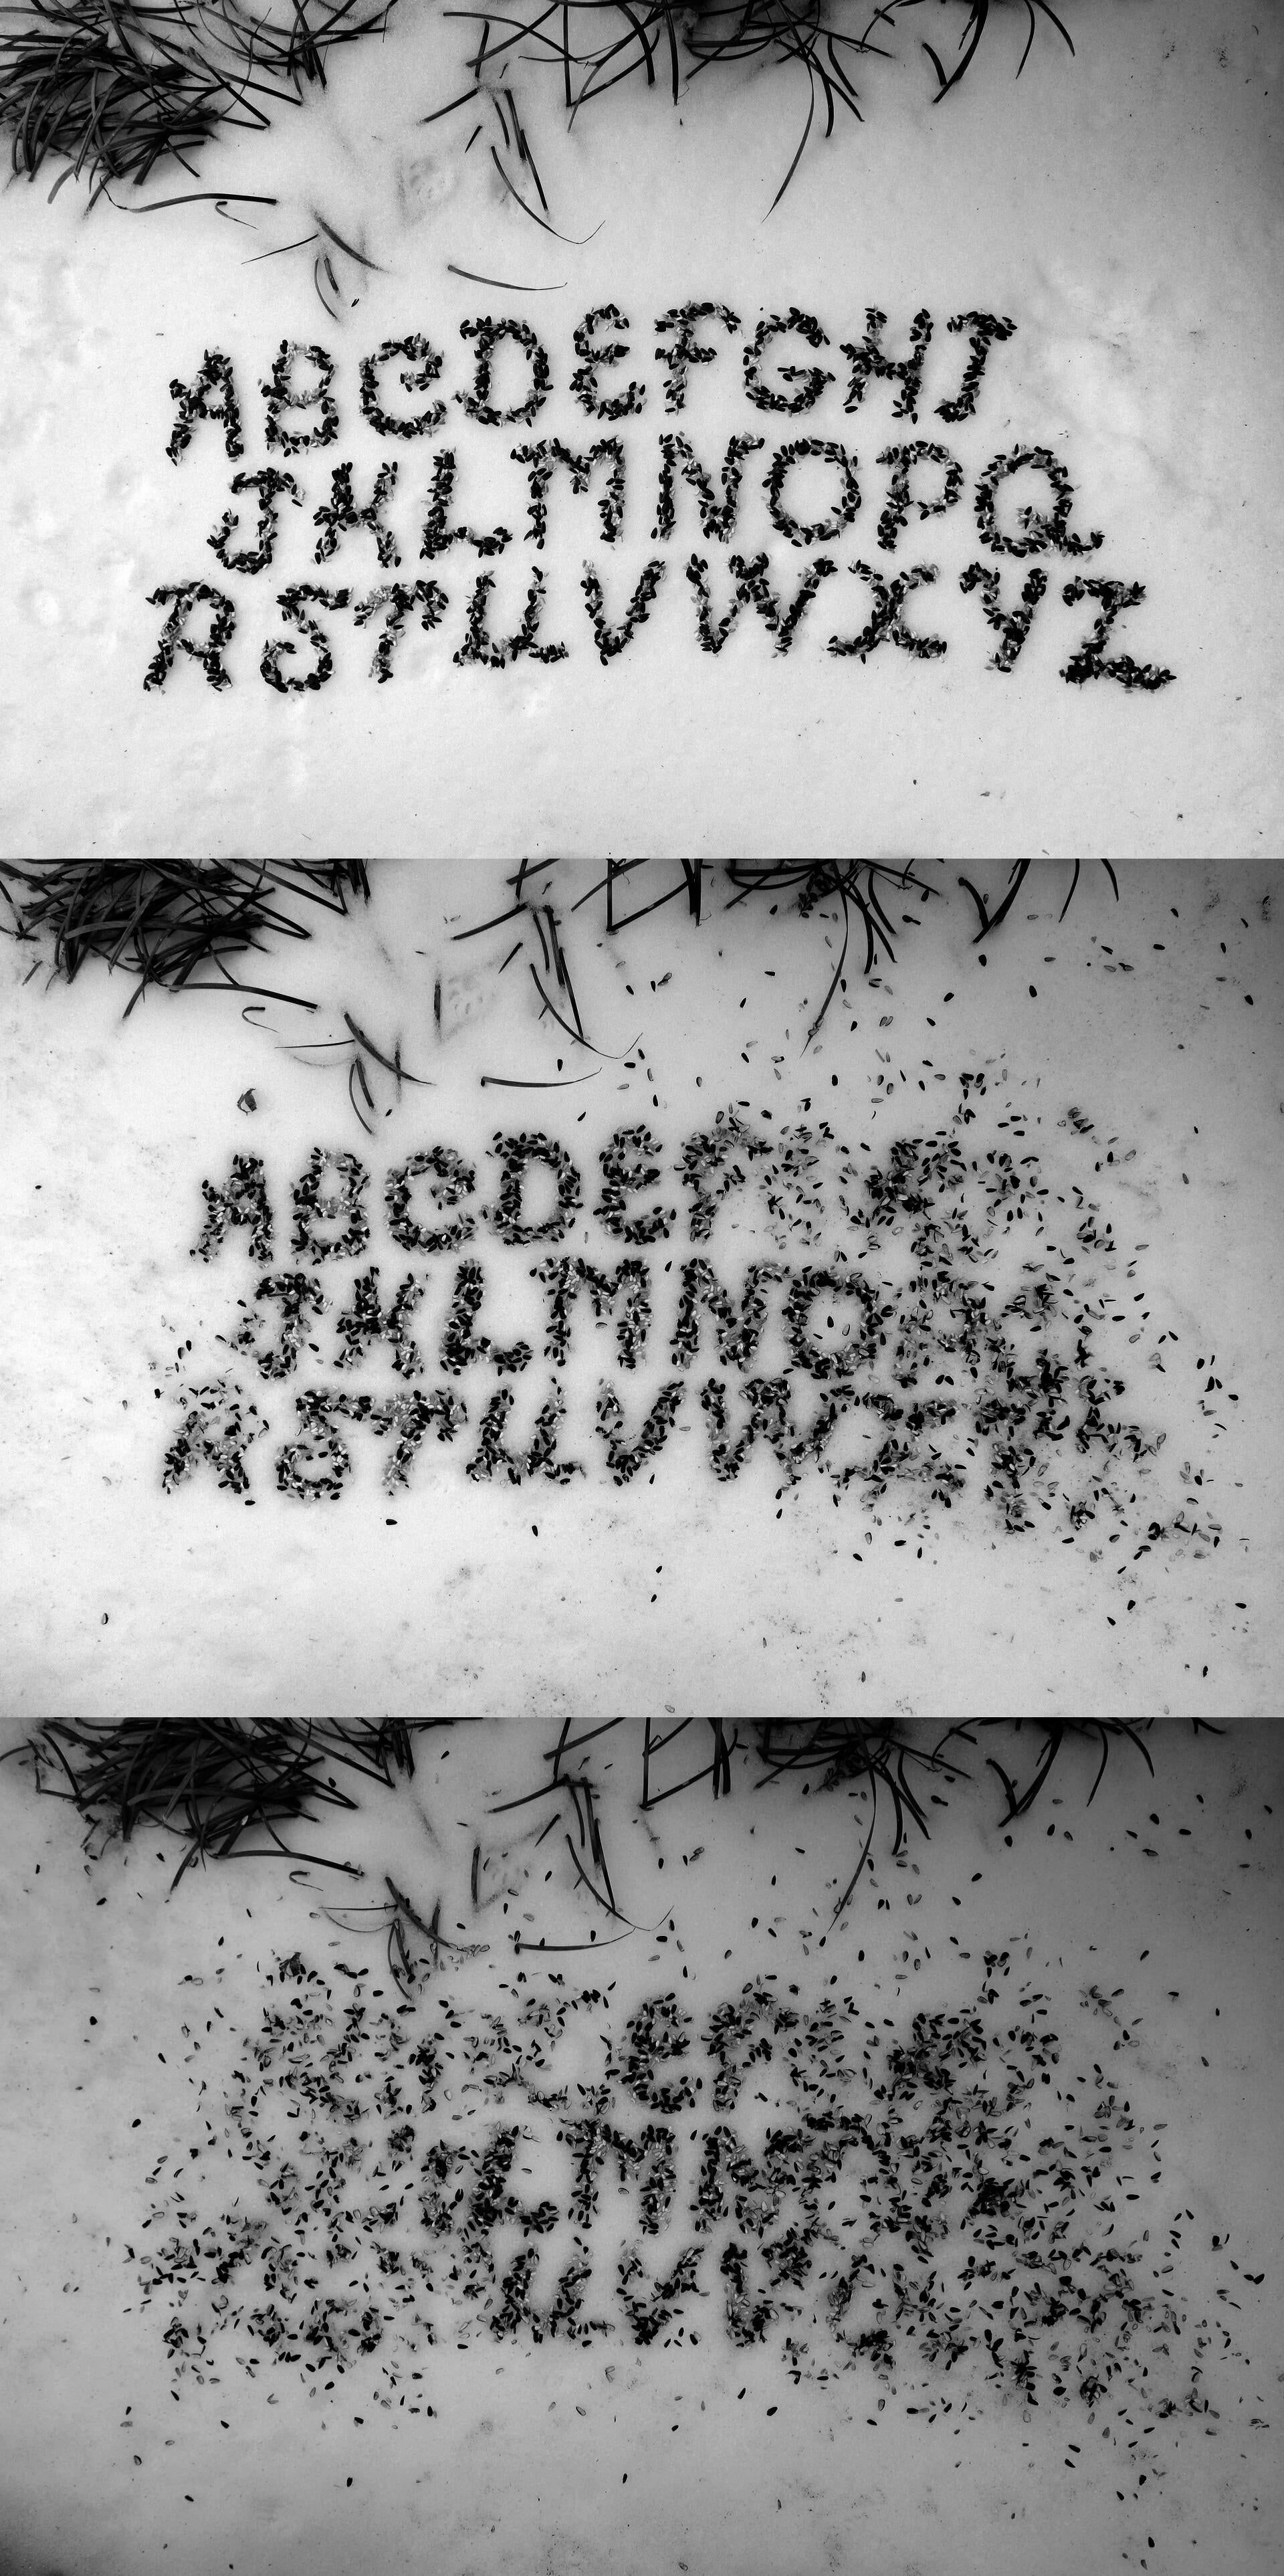 ABCDEFGHI
JKLMNOPQ
RSTUVWXYZ
ABCDEF
JKLMNO
RSTUVW
EF
LMN
UV